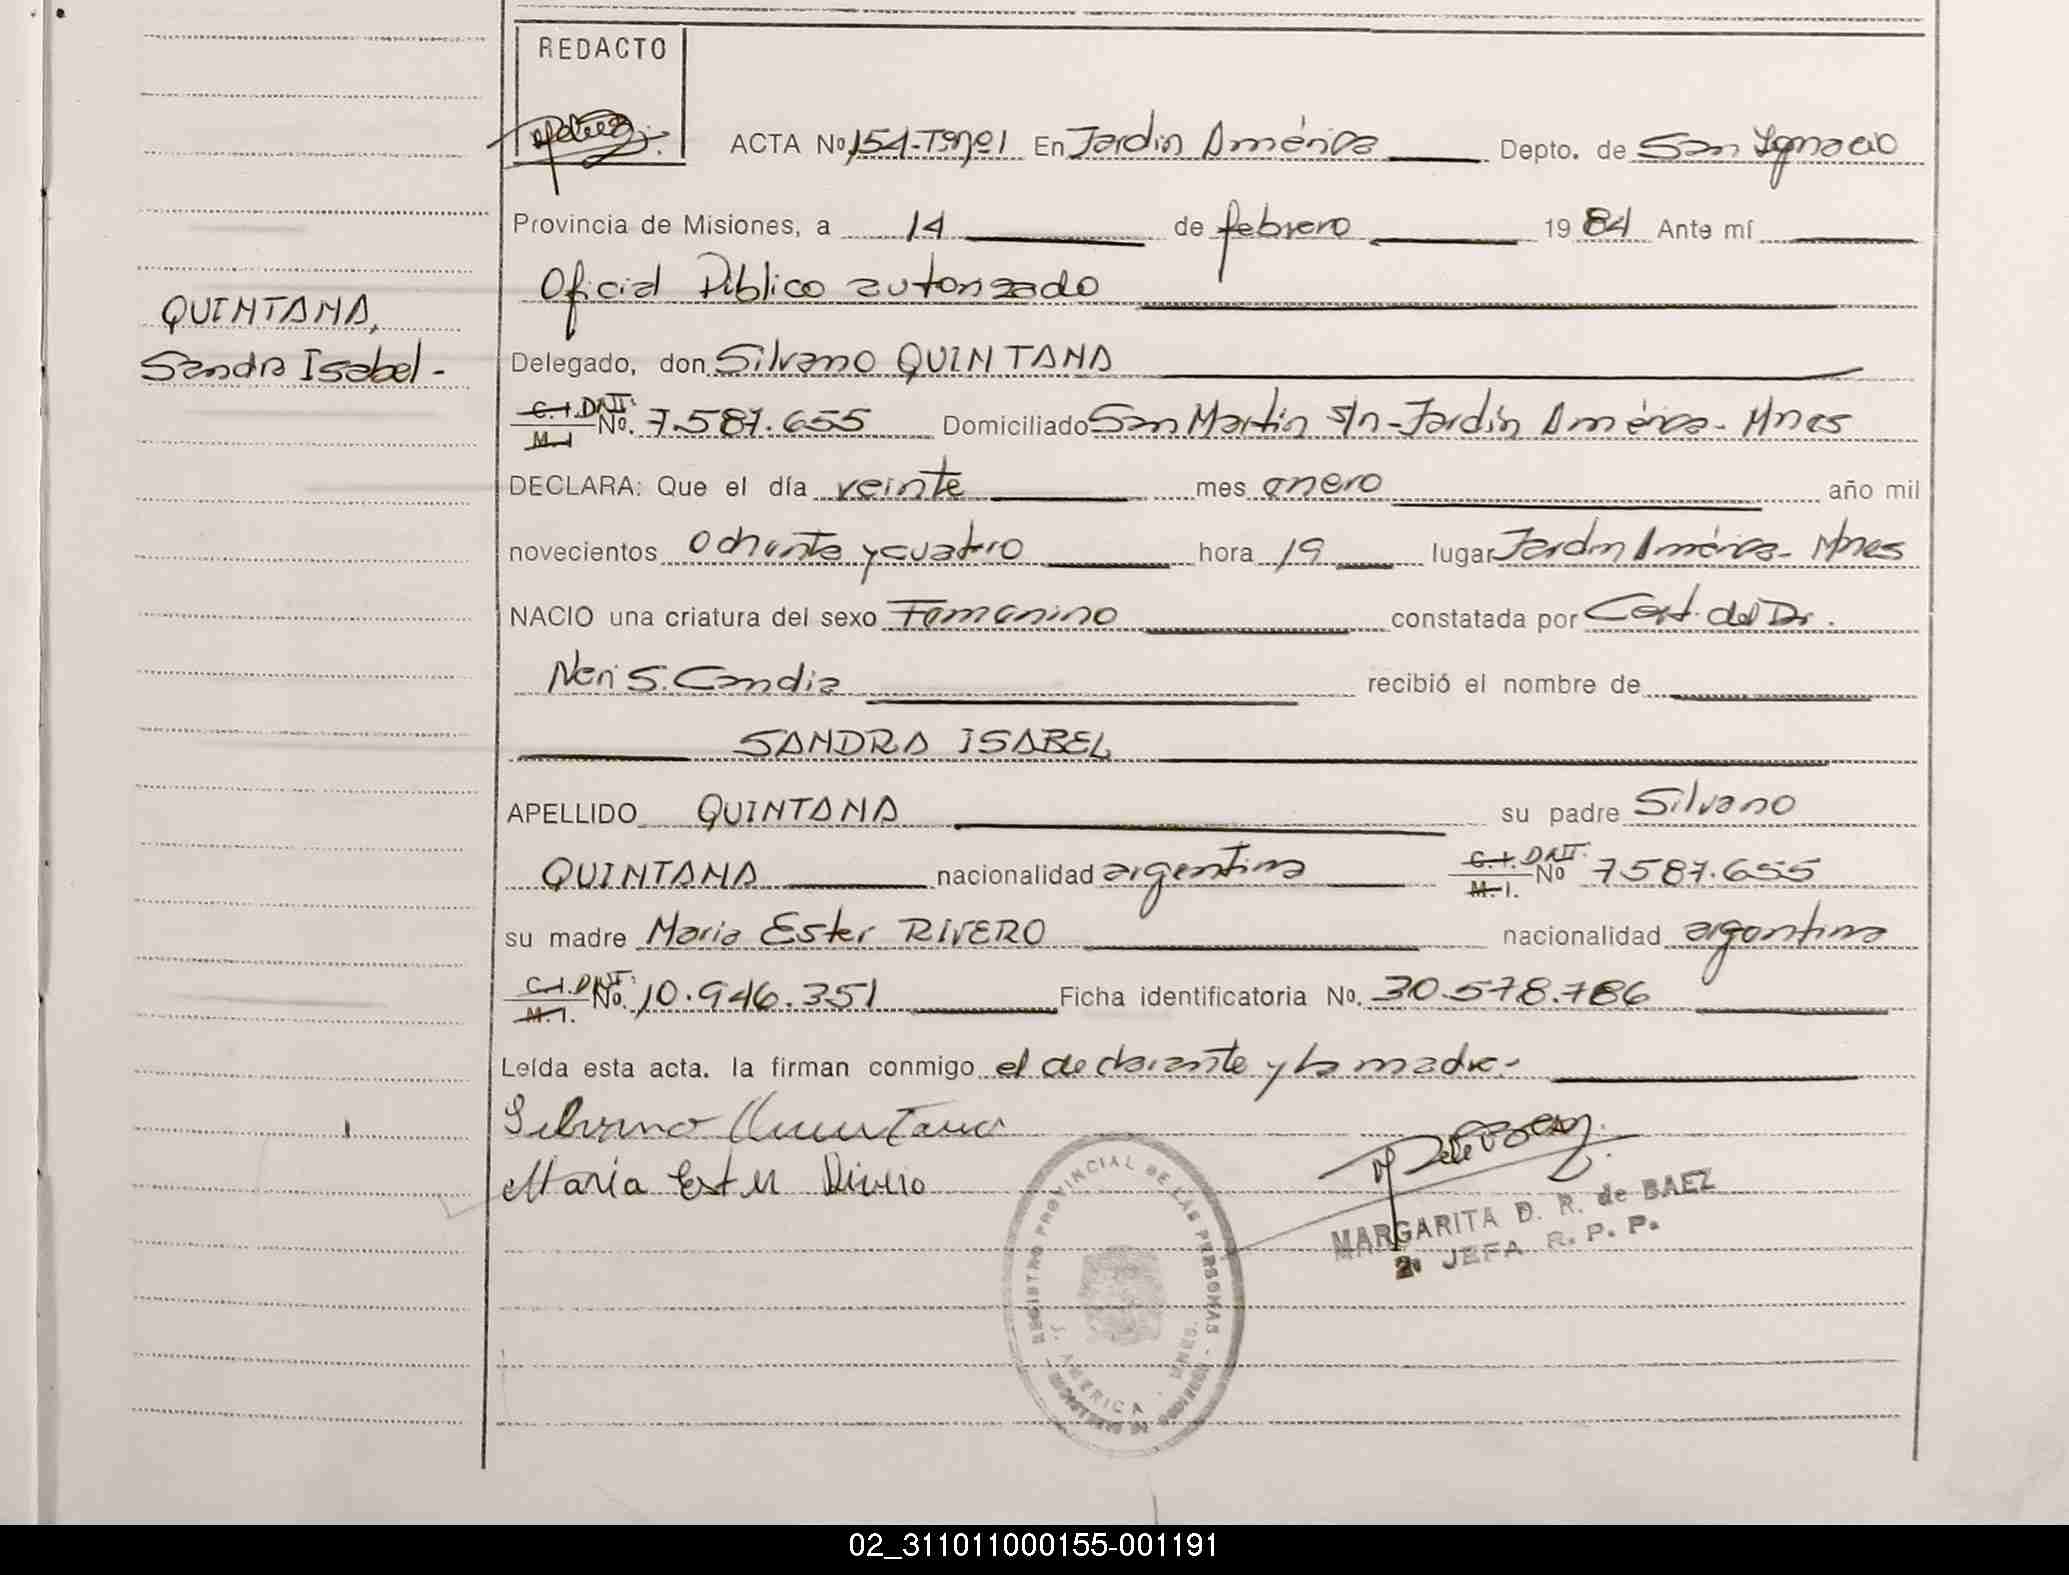 REDACTO
ACTA No 154-Tº1 En Jardín América Depto. de San Ignacio
Provincia de Misiones, a 14 de febrero 19 84 Ante mí
Oficial Público autorizado
QUINTANA,
Sandra Isabel -
Delegado, don Silvano QUINTANA
C.I. DNI. M.I No. 7.587.655 Domiciliado San Martín s/n - Jardín América - Mnes
DECLARA: Que el día veinte mes enero año mil
novecientos ochenta y cuatro hora 19 lugar Jardín América - Mnes
NACIO una criatura del sexo Femenino constatada por Cert. del Dr.
Neri S. Candia recibió el nombre de
SANDRA ISABEL
APELLIDO QUINTANA su padre Silvano
QUINTANA nacionalidad argentina C.I. DNI. M.I. No 7587.655
su madre Maria Ester RIVERO nacionalidad argentina
C.I. DNI. M.I. No. 10.946.351 Ficha identificatoria No. 30.578.786
Leída esta acta. la firman conmigo el declarante y la madre -
Silvano Quintana
Maria Ester Rivero
MARGARITA D. R. de BAEZ
2º JEFA R. P. P.
REGISTRO PROVINCIAL DE LAS PERSONAS
J. AMERICA - MNES.
02_311011000155-001191